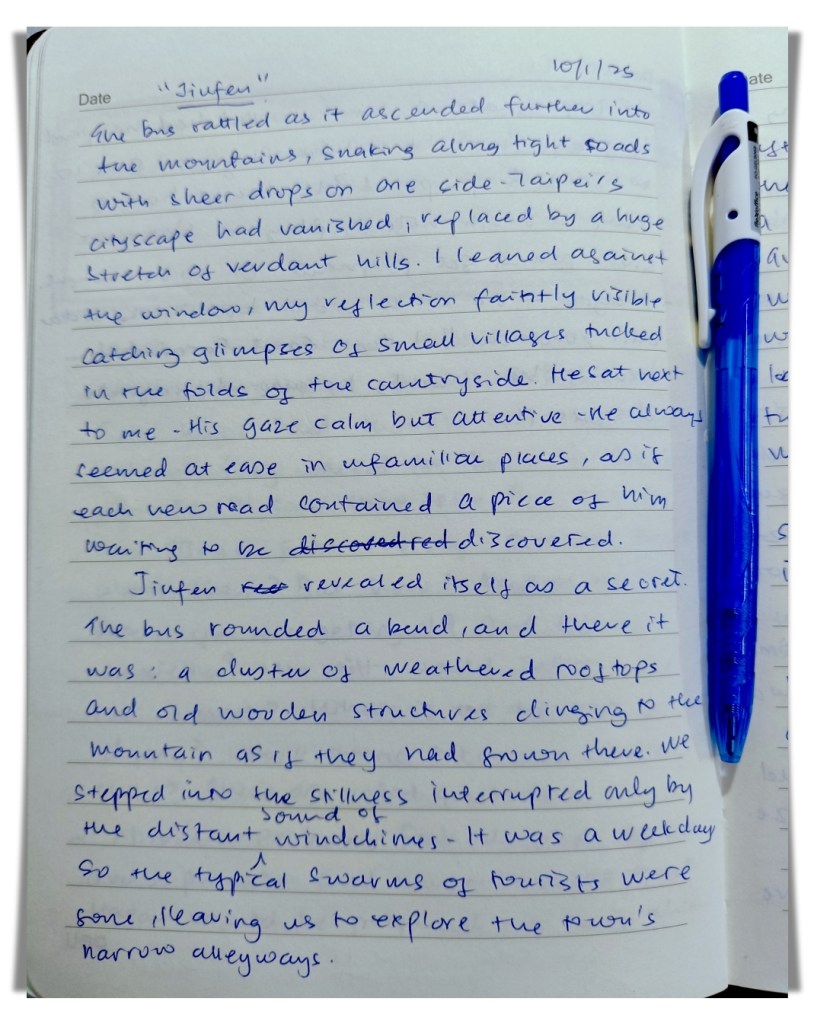 Date "Jiufen" 10/1/25
The bus rattled as it ascended further into
the mountains, snaking along tight roads
with sheer drops on one side. Taipei's
cityscape had vanished, replaced by a huge
stretch of verdant hills. I leaned against
the window, my reflection faintly visible
catching glimpses of small villages tucked
in the folds of the countryside. He sat next
to me. His gaze calm but attentive. He always
seemed at ease in unfamiliar places, as if
each new road contained a piece of him
waiting to be discovered.
Jiufen revealed itself as a secret.
The bus rounded a bend, and there it
was: a cluster of weathered rooftops
and old wooden structures clinging to the
mountain as if they had grown there. We
stepped into the stillness interrupted only by
the distant sound of windchimes. It was a weekday
so the typical swarms of tourists were
gone, leaving us to explore the town's
narrow alleyways.
ate